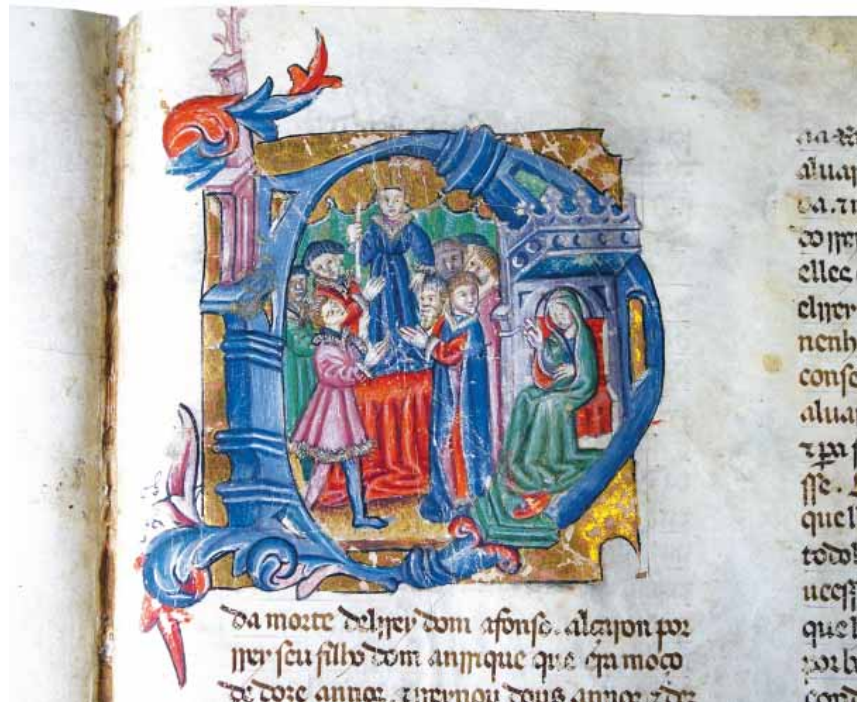 da morte delrrey dom afonso. alçaron por
rrey seu filho dom anrrique que era moço
de doze annos. ⁊ rreynou dous annos ⁊ dez
aluar
da. ⁊
do rrey
elles
elrrey
nenh
conse
alua
⁊
sse.
quel
todos
que
por
cord